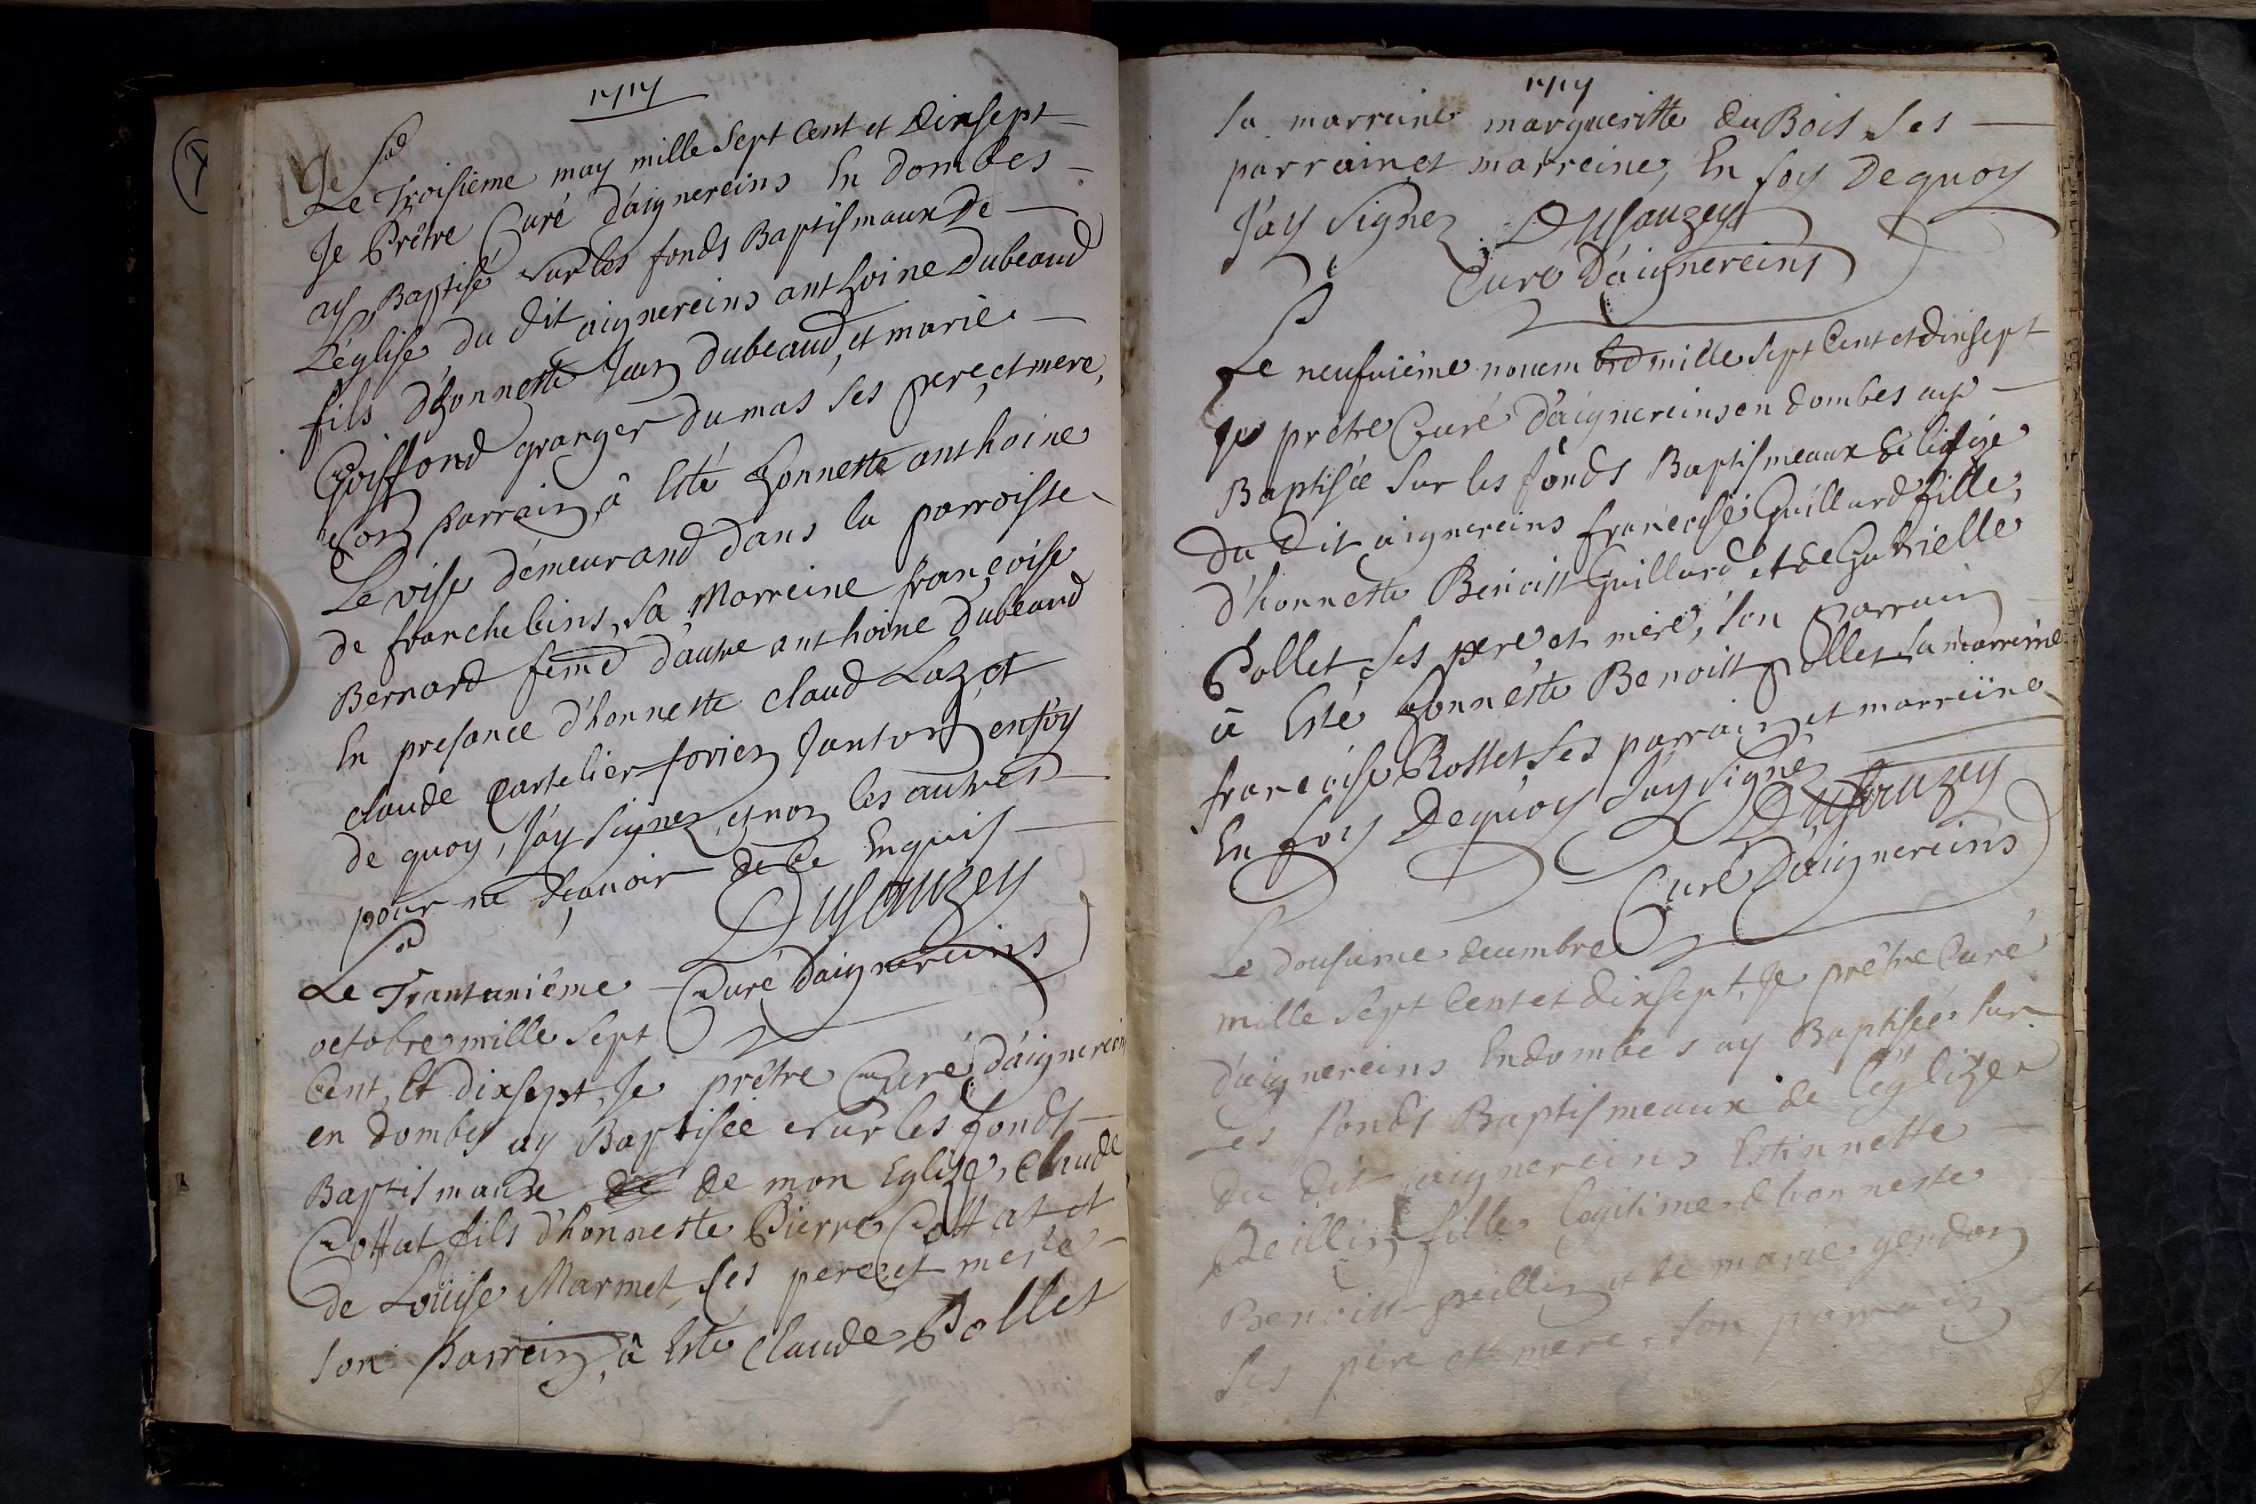 1717
Je
Le Troisieme may mille Sept Cent et Dixsept
Je Prêtre Curé d'aignereins En dombes
ay Baptisé sur les fonds Baptismaux De
L'église du dit aignereins anthoine Dubeaud
fils d'honneste Jean Dubeaud, et marie
Goiffond granger du mas ses pere, et mere,
son parrain, à Esté honneste anthoine
Levise démeurand dans la parroisse
de franchelins, sa Marreine françoise
Bernard feme d'autre anthoine dubeaud
En presance d'honneste claud Lazot
claude Cartelier forien Janton enfoy
de quoy, J'ay signez, et non les autres
pour ne sçauoir de ce Enquis
Dusauzey
Curé d'aignereins
Le Trantaniéme
octobre mille Sept
Cent, Et dixsept, Je prêtre Curé d'aignereins
en dombes ay Baptisée sur les fonds
Baptismaux de de mon Eglize, Claude
Cottat fils d'honneste Pierre Cottat et
de Loüise Marmet, ses pere, et mere
son Parrein, à Esté Claude Pollet
1717
Sa marreine margueritte du Bois Ses
parrain et marreine, En foy Dequoy
J'ay Signez Dusauzey
Curé D'aignereins
Le neufuiéme nouembre mille Sept Cent et Dixsept
Je prêtre Curé d'aignereins en dombes ay
Baptisée Sur les fonds Baptismeaux de léglize
du dit aignereins françoise Guillard fille,
d'honneste Benoist Guillard et de Gabrielle
Pollet, ses pere et mere, son parrain
à Esté honneste Benoist pollet sa marreine
françoise Rosset ses parrain, et marreine
En foy Dequoy J'ay signé
Dusauzey
Curé D'aignereins
Le dousieme decembre
mille Sept Cent et dixsept, Je prêtre Curé
d'aignereins En dombes ay Baptisée, sur
Les fonds Baptismeaux de l'églize
du dit aignereins Estinnette
Peillin fille legitime d'honneste
Benoist peillin et de marie gendon
Ses pere et mere, Son parrain